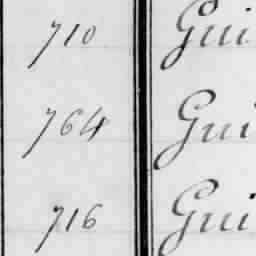 710 Gui
764 Gui
716 Gui